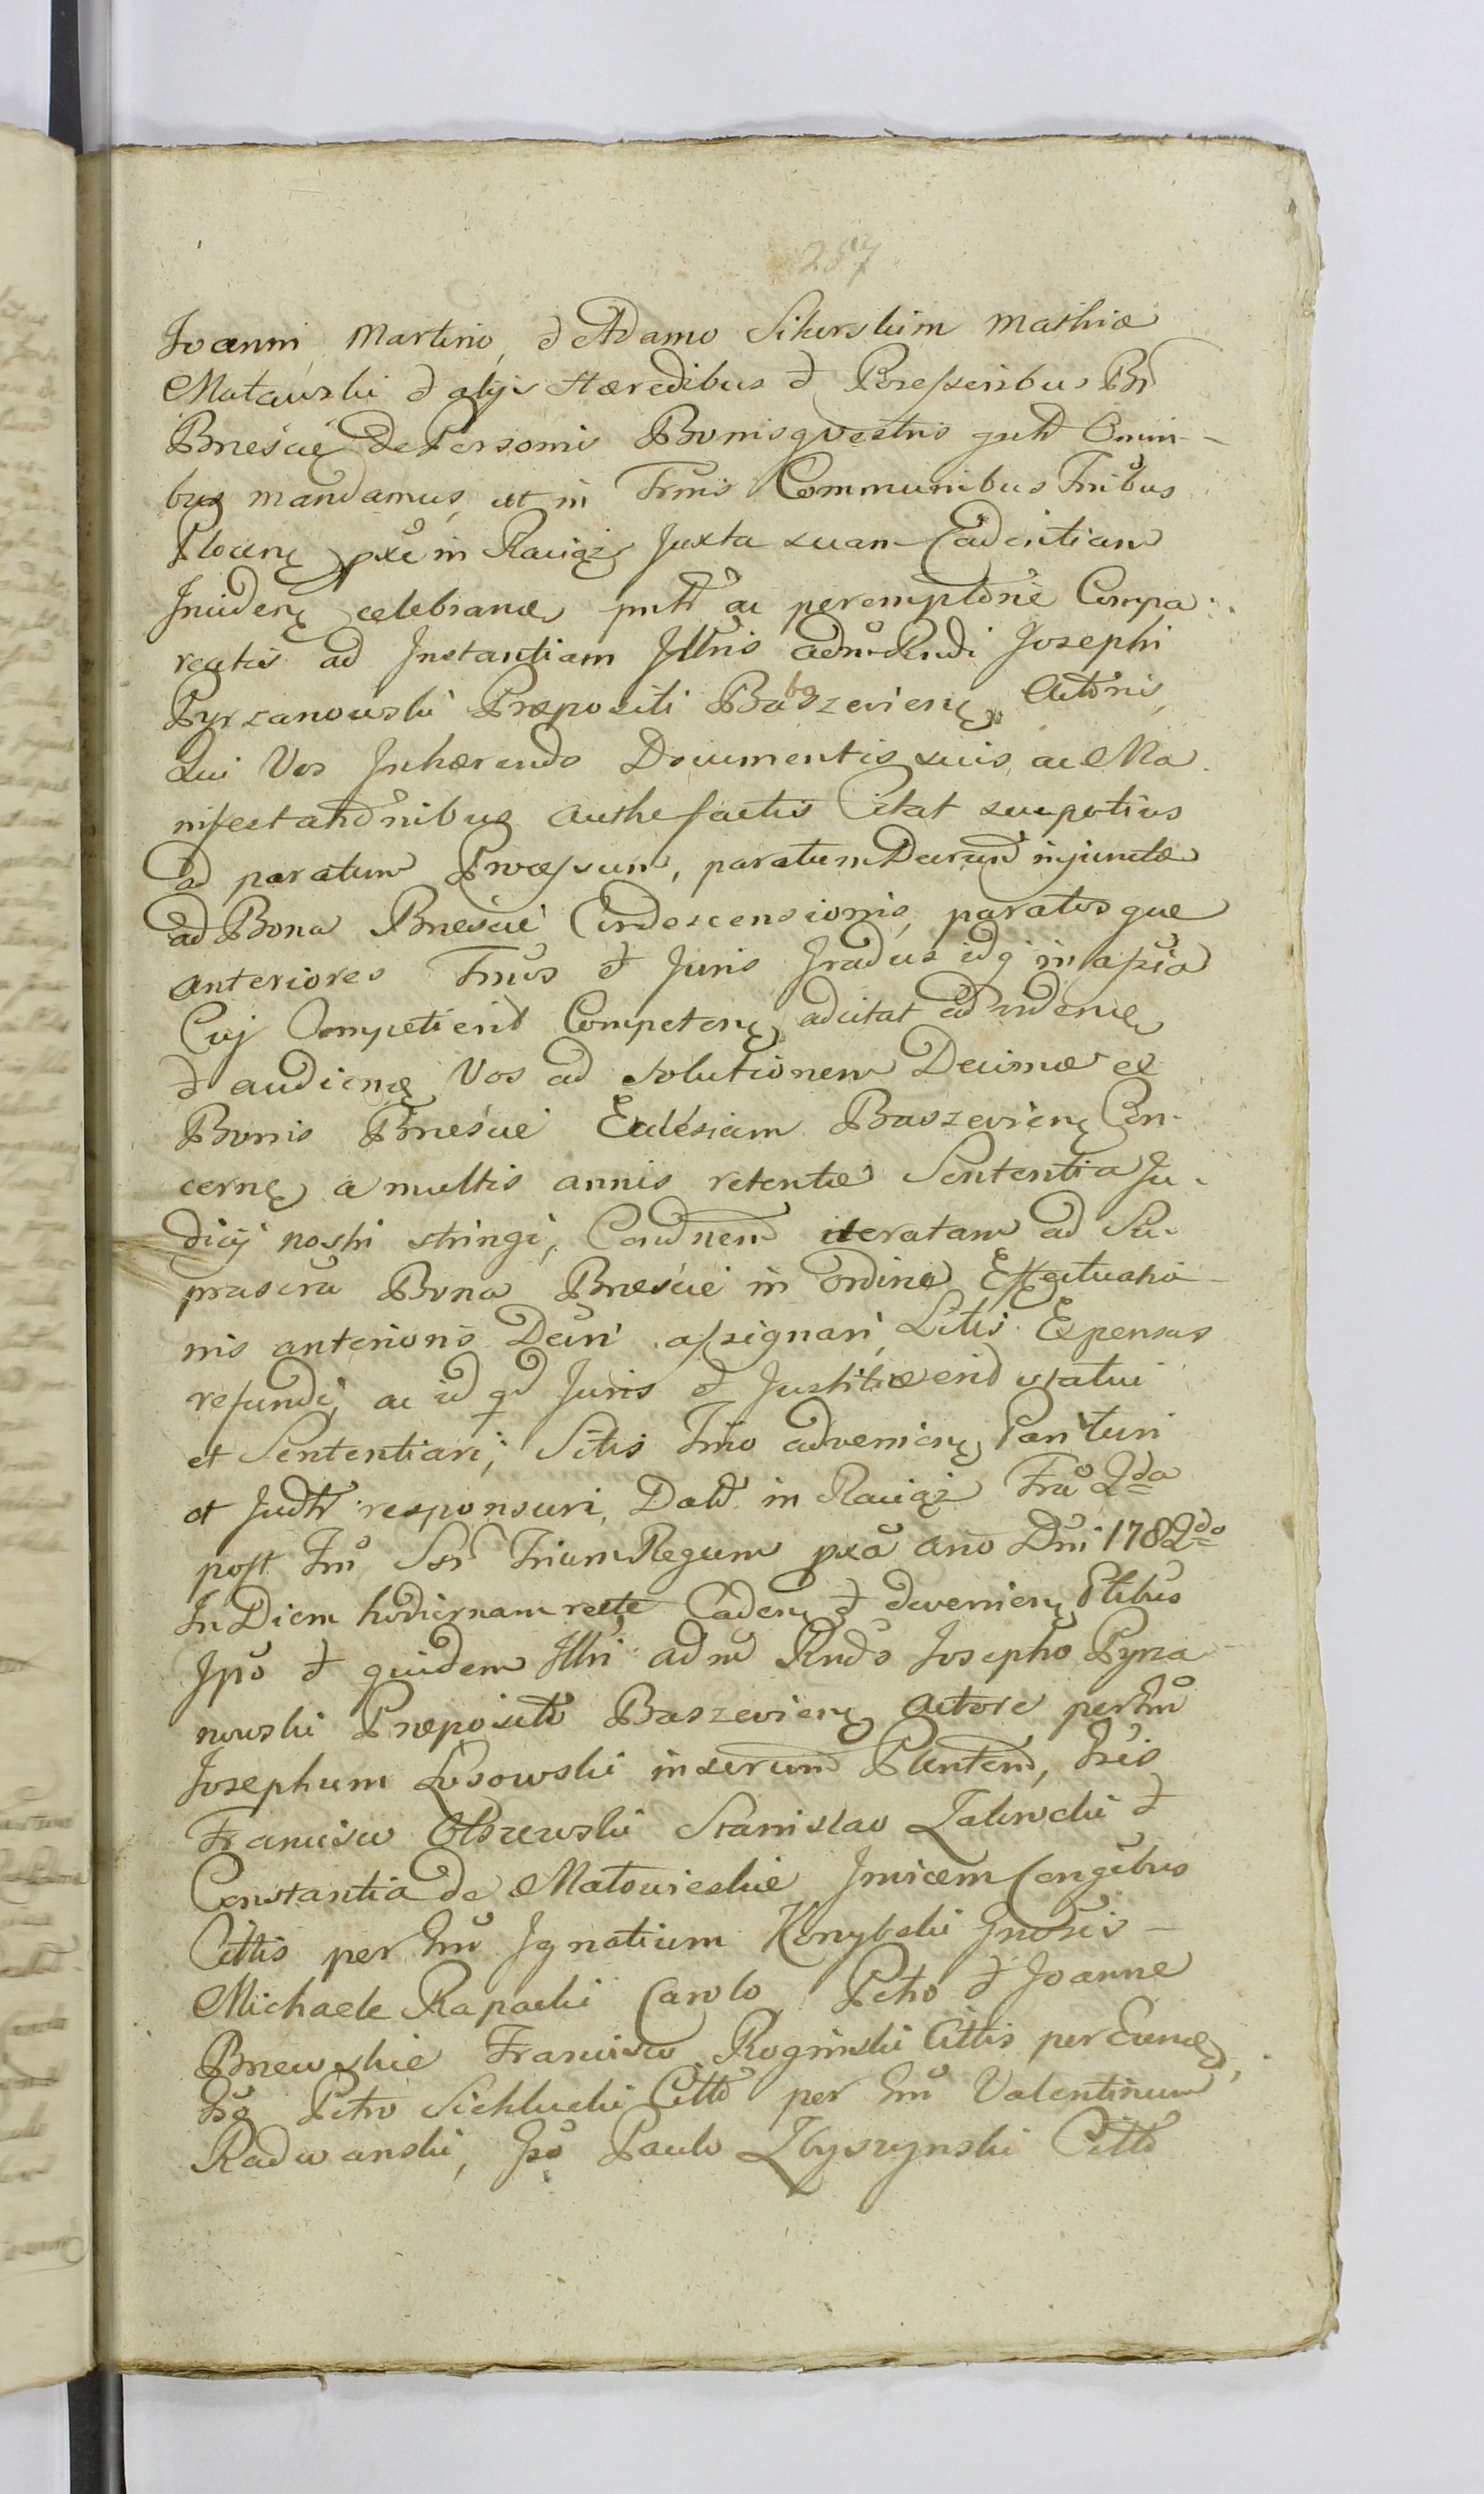 257
Joanni, Martino, et Adamo Sikorskim Mathiæ
Matawski et alijs Hæredibus et Possessoribus Br
Bnieście de Personis Bonisq vestris gntr Omni-
bus mandamus, ut in Trnis Communibus Trribus
Plocens pxe in Raciąż Juxta suam Cadentiam
Inciden celebranæ pntr ac peremptorie Compa-
reatis ad Instantiam Illris adm Rndi Josephi
Pyrzanowski Præpositi Baboszeviens Actoris,
Qui Vos Inhærendo Documentis suis, ac Ma-
nifestationibus authefactis Citat suepotius
ad paratum Processum, paratum Decrum injunctæ
ad Bona Bnieście Condescensionis, paratosque
anteriores Trnos et Juris Gradus idq in assia
Cuj Competierit Competens adcitat ad videne
et audiene Vos ad solutionem Decimæ ex
Bonis Bnieście Ecclesiam Baszeviens Con-
cerne a multis annis retentæ Sententia Ju-
dicij nostri stringi, Condnem iteratam ad Su-
prascra Bona Bnieście in ordine Effectuatio-
nis anterioris Decri assignari, Litis Expensas
refundi, ac id qd Juris et Justitiæ erit statui
et Sententiari, Sitis Trno adveniens Parituri
et Judtr responsuri, Datt in Raciąż Fra 2da
post Fm Ssr Trium Regum pxa ano Dni 1782do
In Diem hodiernam recte Cadens et deveniens Ptibus
Ipso et quidem Illri adm Rndo Josepho Pyrza-
nowski Præposito Baszeviens actore per Gm
Josephum Lisowski inserum Plentem, Gsis
Francisco Olszewski Stanislao Zalewski et
Constantia de Matowieskie Invicem Congibus
Cittis per Gm Ignatium Konybski Gnosis -
Michaele Rapacki Carolo Petro et Joanne
Bniewskie Francisco Rogiński Cittis per Eunde,
Gso Petro Sichlucki Citto per Gm Valentinum
Radwanski, Gso Paulo Zbyszynski Citto